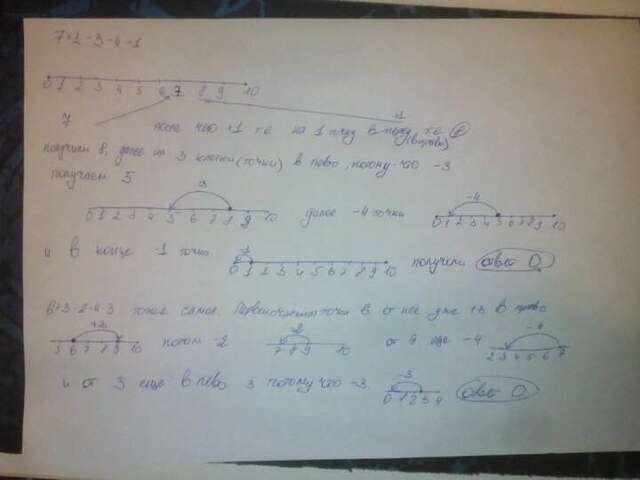 7+1-3-4-1
0 1 2 3 4 5 6 7 8 9 10
7 +1
после чего +1 т.е на 1 точку в перёд т.е
(вправо)
получили 8, далее на 3 клетки (точки) в лево, потому-что -3
получаем 5
-3 -4
0 1 2 3 4 5 6 7 8 9 10 далее -4 точки 0 1 2 3 4 5 6 7 8 9 10
и в конце -1 точка -1 0 1 2 3 4 5 6 7 8 9 10 получили ответ 0
6+3-2-4-3 тоже самое. Первоначальная точка 6 от неё уже +3 в право
+3 -2 -4
5 6 7 8 9 10 потом -2 7 8 9 10 от 7 еще -4 2 3 4 5 6 7
и от 3 еще в лево 3 потому что -3 -3 0 1 2 3 4 ответ 0